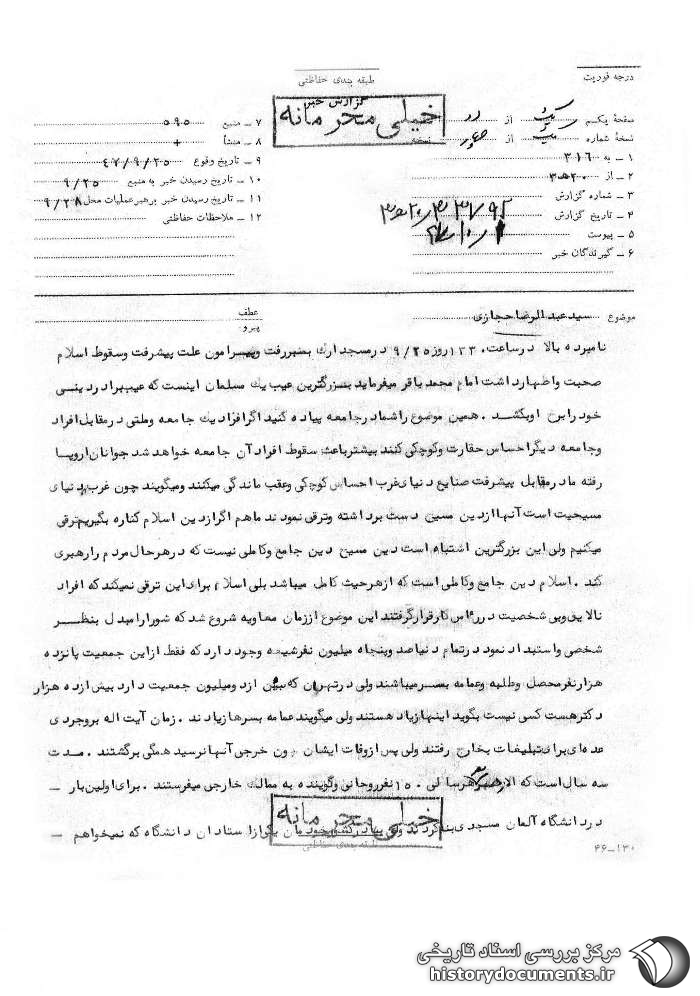 درجه فوریت
طبقه بندی حفاظتی
گزارش خبر
خیلی محرمانه
صفحه یکم از
نسخه شماره از نسخه
۱ ـ به ۳۱۶
۲ ـ از ۲۰ﻫ۳
۳ ـ شماره گزارش
۴ ـ تاریخ گزارش
۵ ـ پیوست
۶ ـ گیرندگان خبر
۷ ـ منبع ۵۹۵
۸ ـ منشأ +
۹ ـ تاریخ وقوع ۴۷/۹/۲۵
۱۰ ـ تاریخ رسیدن خبر به منبع ۹/۲۵
۱۱ ـ تاریخ رسیدن خبر برهبرعملیات محل ۹/۲۸
۱۲ ـ ملاحظات حفاظتی
موضوع سید عبدالرضا حجازی
عطف
پیرو
نامبرده بالا در ساعت ۱۳۳۰ روز ۹/۲۵ در مسجد ارك بمنبر رفت و پیرامون علت پیشرفت وسقوط اسلام
صحبت واظهار داشت امام محمد باقر میفرماید بزرگترین عیب یك مسلمان اینست که عیب برادر دینی
خود رابرخ اوبکشد . همین موضوع راشما در جامعه پیاده کنید اگر افراد یك جامعه وملتی در مقابل افراد
وجامعه دیگر احساس حقارت وکوچکی کنند بیشتر باعث سقوط افراد آن جامعه خواهد شد جوانان اروپا
رفته ما در مقابل پیشرفت صنایع دنیای غرب احساس کوچکی وعقب ماندگی میکنند ومیگویند چون غرب دنیای
مسیحیت است آنها از دین مسیح دست برداشته وترقی نمودند ماهم اگر از دین اسلام کناره بگیریم ترقی
میکنیم ولی این بزرگترین اشتباه است دین مسیح دین جامع وکاملی نیست که در هر حال مردم را رهبری
کند . اسلام دین جامع وکاملی است که از هر حیث کامل میباشد بلی اسلام برای این ترقی نمیکند که افراد
نالایق وبی شخصیت در رأس کار قرار گرفتند این موضوع از زمان معاویه شروع شد که شورا را مبدل بنظر
شخصی واستبداد نمود در تمام دنیا صد وپنجاه میلیون نفر شیعه وجود دارد که فقط از این جمعیت پانزده
هزار نفر محصل وطلبه وعمامه بسر میباشند ولی در تهران که بیش از دو میلیون جمعیت دارد بیش از ده هزار
دکتر هست کسی نیست بگوید اینها زیاد هستند ولی میگویند عمامه بسرها زیادند . زمان آیت اله بروجردی
عده ای برای تبلیغات بخارج رفتند ولی پس از وفات ایشان چون خرجی آنها نرسید همگی برگشتند . مدت
سه سال است که هر سالی ۱۵۰ نفر روحانی وگوینده به ممالك خارجی میفرستند . برای اولین بار ـ
در دانشگاه آلمان مسجدی بنا کردند ولی یکی از استادان دانشگاه که نمیخواهم ـ
خیلی محرمانه
طبقه بندی حفاظتی
۴۶-۱۳۰
مرکز بررسی اسناد تاریخی
historydocuments.ir